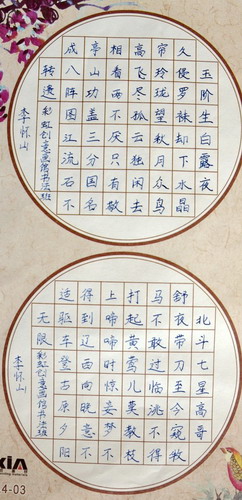 玉阶生白露夜
久侵罗袜却下水晶
帘玲珑望秋月众鸟
高飞尽孤云独闲去
相看两不厌只有敬
亭山功盖三分国名
成八阵图江流石不
转遗
彩虹创意画馆书法班
李怀山
北斗七星高哥
舒夜带刀至今窥牧
马不敢过临洮不得
打起黄莺儿莫教枝
上啼啼时惊妾梦不
得到辽西向晚意不
适驱车登古原夕阳
无限
彩虹创意画馆书法班
李怀山
XIA
4-03